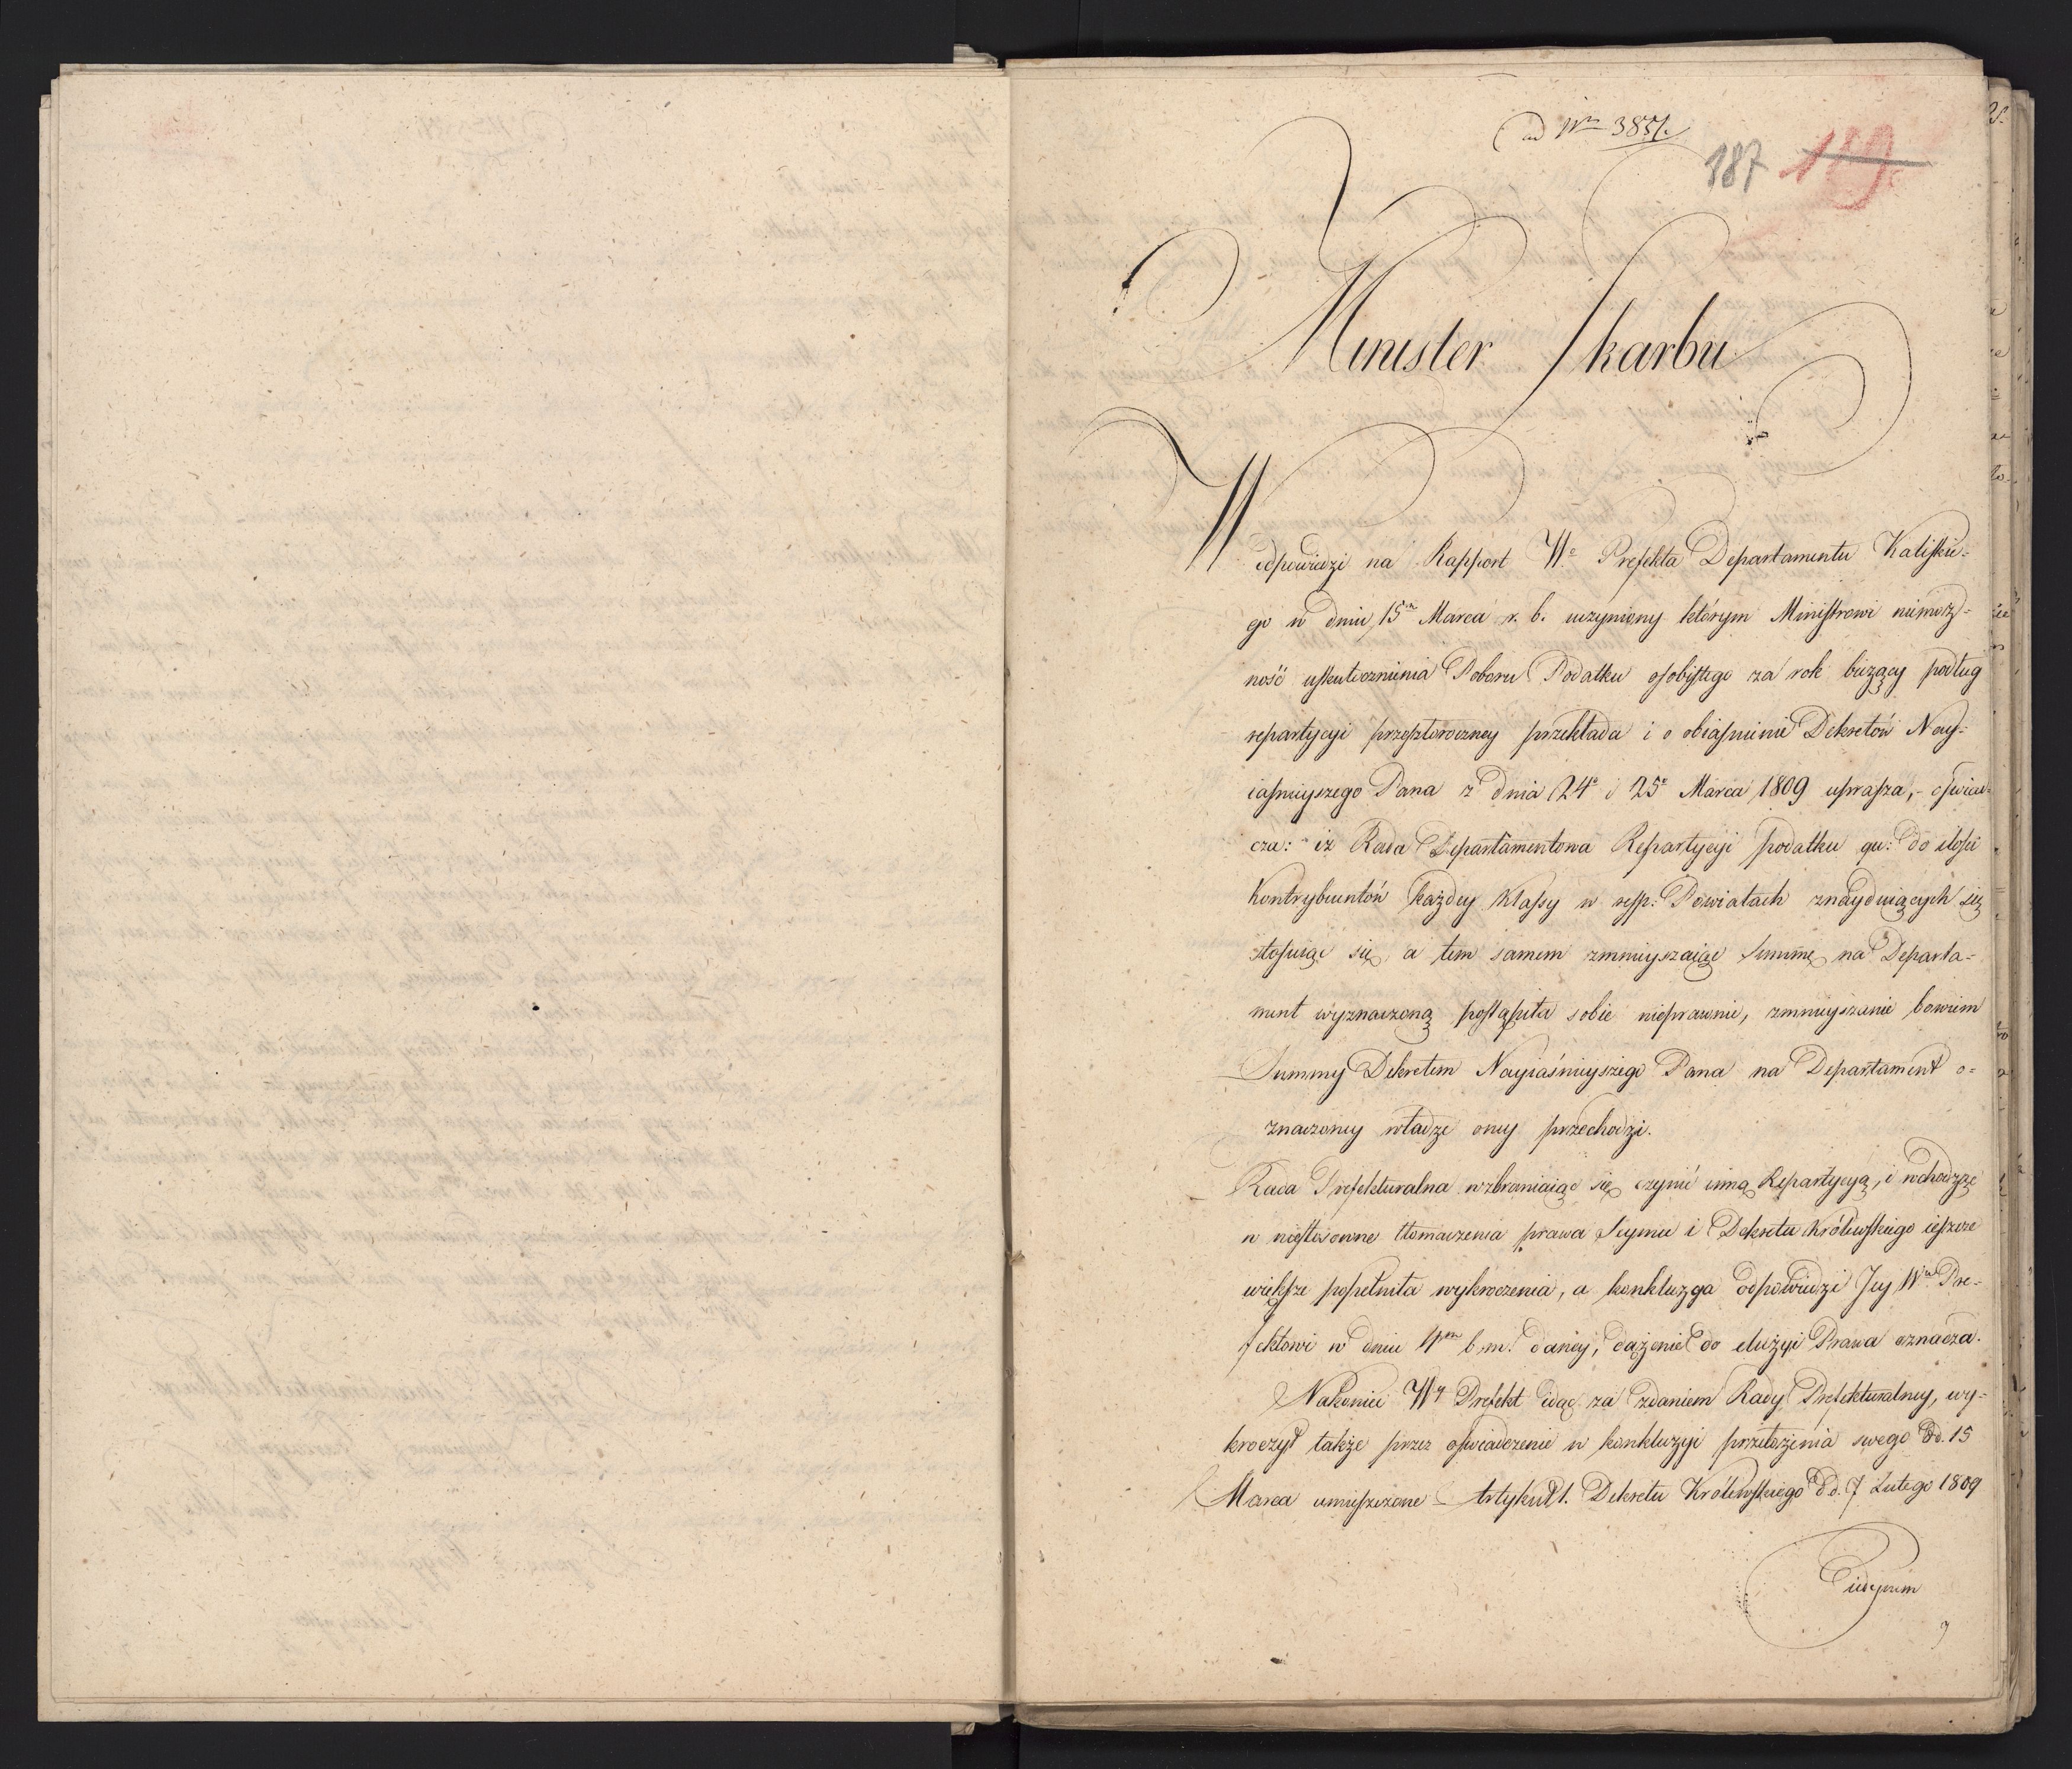 ad Nrm 3851.
187 119
Minister Skarbu
W odpowiedzi na Rapport We Prefekta Departamentu Kalisku-
go w dniu 15m Marca r. b. uczyniony którym Ministrowi niemoż-
ność uskutecznienia Poboru Podatku osobistego za rok bieżący podług
repartycyi przeszłoroczney przekłada i o obiaśnienie Dekretów Nay-
iaśnieyszego Pana z dnia 24o i 25o Marca 1809 uprasza, - oświad-
cza: iż Rada Departamentowa Repartycyi podatku qu: do ilości
Kontrybuentów każdey Klassy w resp: Powiatach znayduiących się
stosuiąc się, a tem samem zmnieyszaiąc Summę na Departa-
ment wyznaczoną postąpiła sobie nieprawnie, zmnieyszenie bowiem
Summy Dekretem Nayiaśnieyszego Pana na Departament o-
znaczoney władzę oney przechodzi.
Rada Prefekturalna wzbraniaiąc się czynić inną Repartycyą, i wchodząc
w niestosowne tłomaczenia prawa Seymu i Dekretu Królewskiego ieszcze
większe popełniła wykroczenia, a konkluzya odpowiedzi Jey Wmu Pre-
fektowi w dniu 4m b. m. daney, dążenie do eluzyi Prawa oznacza.
Nakoniec Wy Prefekt idąc za zdaniem Rady Prefekturalney, wy-
kroczył także przez oświadczenie w konkluzyi przełożenia swego dd. 15
Marca umieszczone - Artykuł 1. Dekretu Królewskiego dd. 7 Lutego 1809